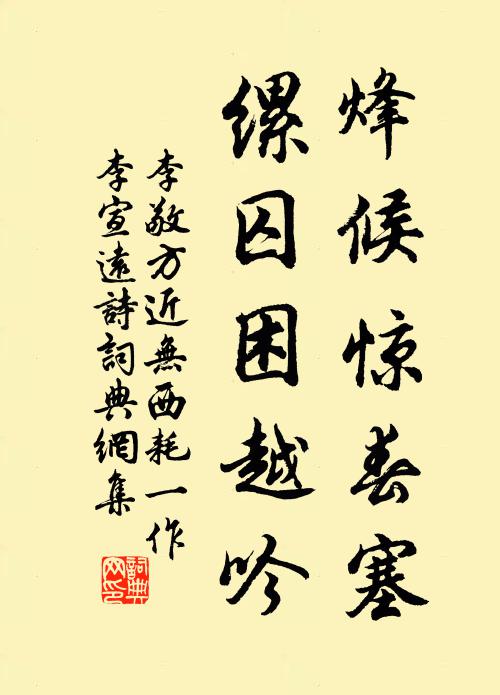 烽候惊春塞
缧囚困越吟
李敬方近無西耗一作
李宣遠詩詞典網集
詞典网印